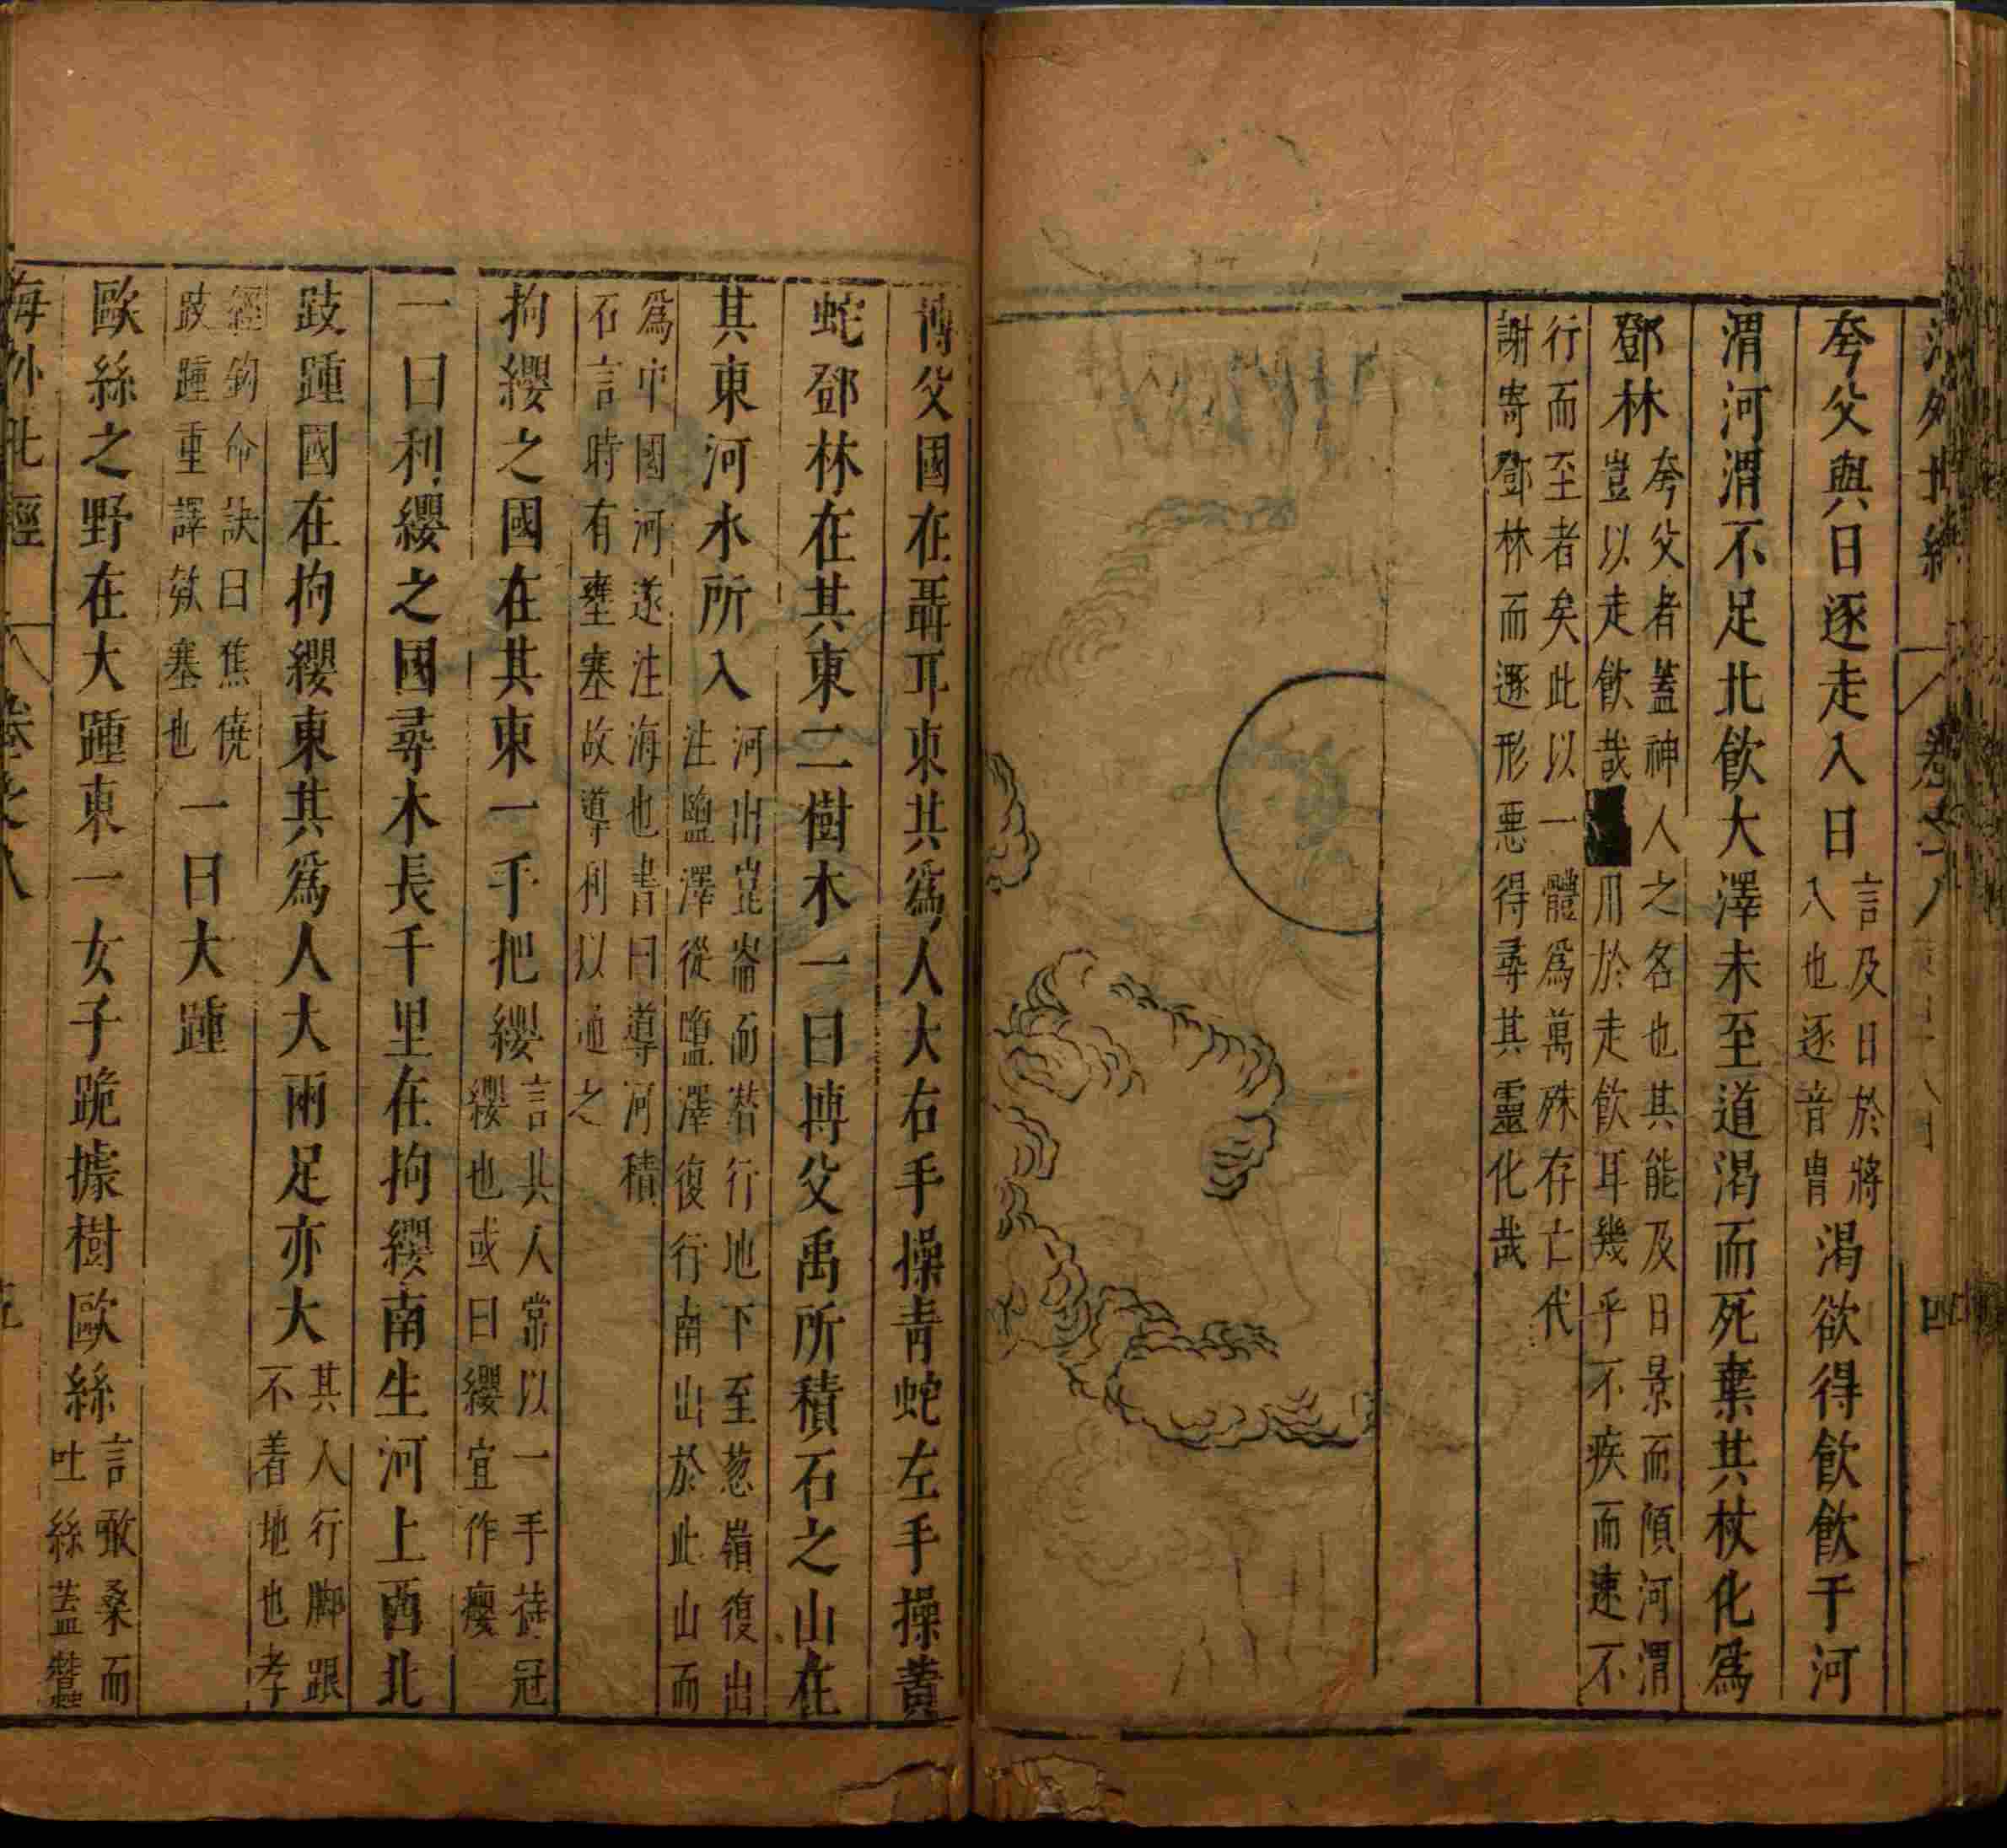 夸父與日逐走入日言及日於將
入也逐音胄渴欲得飲飲于河
渭河渭不足北飲大澤未至道渴而死棄其杖化爲
鄧林夸父者蓋神人之名也其能及日景而傾河渭
豈以走飲哉 用於走飲耳幾乎不疾而速不
行而至者矣此以一體爲萬殊存亡代
謝寄鄧林而遯形惡得尋其靈化哉
博父國在聶耳東其爲人大右手操青蛇左手操黃
蛇鄧林在其東二樹木一曰博父禹所積石之山在
其東河水所入河出崑崙而潛行地下至葱嶺復出
注鹽澤從鹽澤復行南出於此山而
爲中國河遂注海也書曰導河積
石言時有壅塞故導利以通之
拘纓之國在其東一手把纓言其人常以一手持冠
纓也或曰纓宜作癭
一曰利纓之國尋木長千里在拘纓南生河上西北
跂踵國在拘纓東其爲人大兩足亦大其人行脚跟
不着地也孝
經鉤命訣曰焦僥
跂踵重譯欵塞也一曰大踵
歐絲之野在大踵東一女子跪據樹歐絲言噉桑而
吐絲蓋蠶
海外北經 卷之八